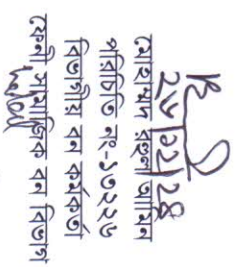 ২৮/১২/২৪
মোহাম্মদ রুহুল আমিন
পরিচিতি নং-১৩২২৬
বিভাগীয় বন কর্মকর্তা
ফেনী সামাজিক বন বিভাগ